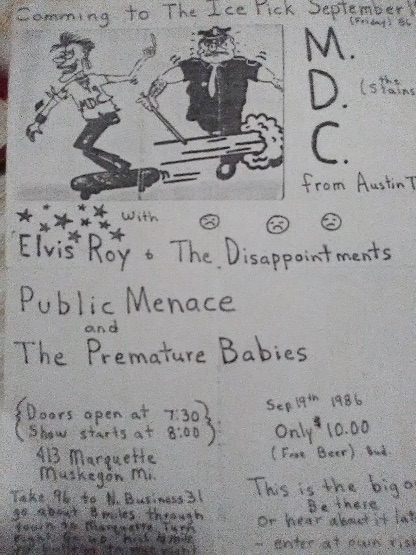 Comming to The Ice Pick September
(Friday) 86
M.
D. (the Stains
C.
from Austin T
MDC
with
Elvis Roy & The Disappointments
Public Menace
and
The Premature Babies
{Doors open at 7:30}
{Show starts at 8:00}
413 Marquette
Muskegon Mi.
Take 96 to N. Business 31
go about 8 miles through
town to Marquette turn
right go up
Sep 19th 1986
Only $10.00
(Free Beer) Bud.
This is the big o
Be there
or hear about it lat
- enter at own risk